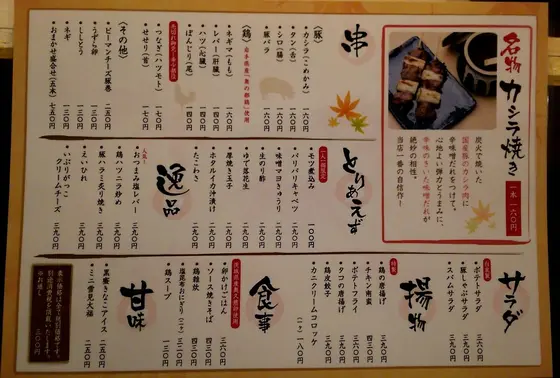 名物
カシラ焼き
一本 一六〇円
炭火で焼いた
国産豚のカシラ肉に
辛味噌だれをつけて。
心地よい弾力とうまみに、
辛味のきいた味噌だれが
絶妙の相性。
当店一番の自信作！
串
〈豚〉
カシラ(こめかみ) 一六〇円
タン(舌) 一六〇円
シロ(腸) 一六〇円
豚バラ 一六〇円
〈鶏〉
ネギマ(もも) 一六〇円
レバー(肝臓) 一四〇円
ハツ(心臓) 一四〇円
ぼんじり(尾) 一四〇円
つなぎ(ハツモト) 一七〇円
せせり(首) 一七〇円
〈その他〉
ピーマンチーズ豚巻 二五〇円
うずら卵 一三〇円
ししとう 一三〇円
ネギ 一三〇円
おまかせ盛合せ(五本) 七五〇円
とりあえず
モツ煮込み 一〇〇円
バリバリキャベツ
味噌マヨきゅうり
生のり酢
ゆで落花生
厚焼き玉子
ホタルイカ沖漬け
たこわさ
逸品
人気!
おつまみ塩レバー 三九〇円
鶏ハツニラ炒め 三九〇円
豚ハラミ炙り焼き 三九〇円
えいひれ 三九〇円
いぶりがっこ
クリームチーズ 三九〇円
サラダ
自家製
ポテトサラダ 三六〇円
豚しゃぶサラダ 三九〇円
スパムサラダ 三九〇円
揚物
特製
鶏の唐揚げ 三九〇円
チキン南蛮
タコの唐揚げ
ポテトフライ
鶏皮餃子
カニクリームコロッケ
食事
卵かけごはん 三六〇円
ソース焼きそば 四三〇円
鶏雑炊 四三〇円
塩昆布おにぎり
鶏スープ 一三〇円
甘味
黒蜜きなこアイス 二五〇円
ミニ雪見大福 二五〇円
表示価格は全て税別価格です。
別途消費税を頂戴いたします。
※お通し 三〇〇円